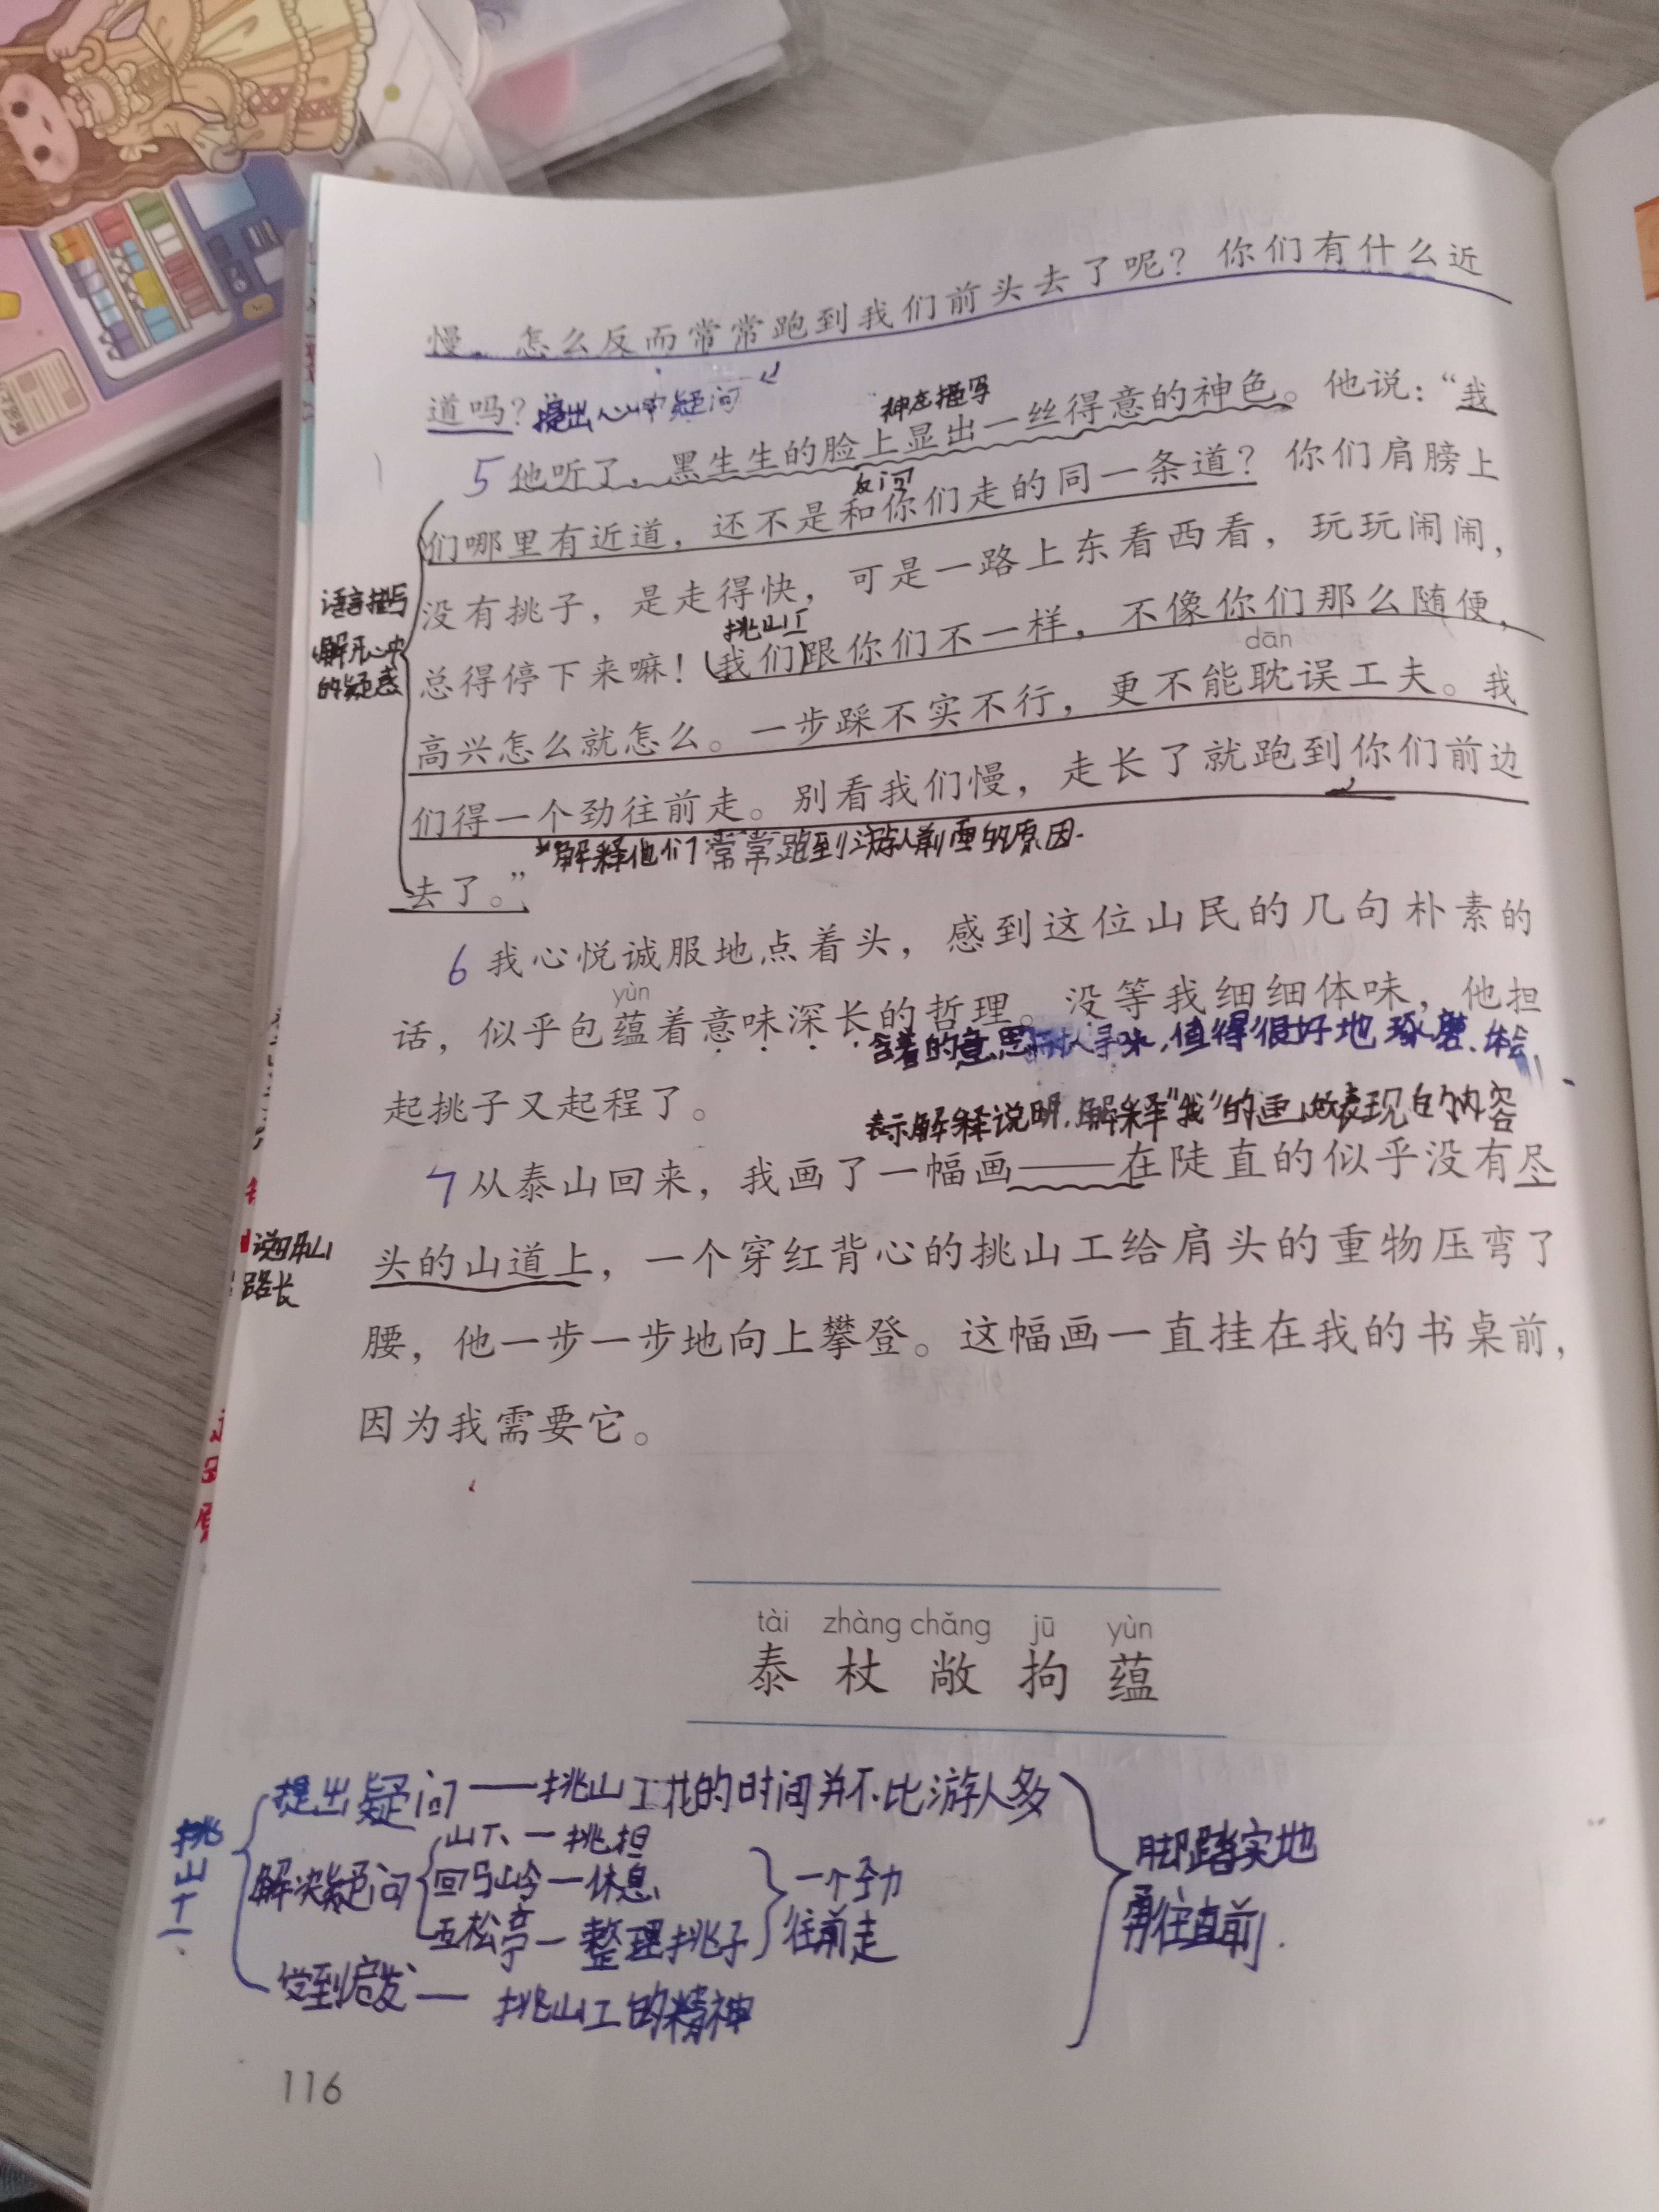 慢，怎么反而常常跑到我们前头去了呢？你们有什么近
道吗？提出心中疑问
神态描写
5 他听了，黑生生的脸上显出一丝得意的神色。他说：“我
反问
们哪里有近道，还不是和你们走的同一条道？你们肩膀上
没有挑子，是走得快，可是一路上东看西看，玩玩闹闹，
语言描写
解开心中
的疑惑
挑山工
总得停下来嘛！(我们)跟你们不一样，不像你们那么随便，
dān
高兴怎么就怎么。一步踩不实不行，更不能耽误工夫。我
们得一个劲往前走。别看我们慢，走长了就跑到你们前边
去了。”
解释他们常常跑到游人前面的原因.
6 我心悦诚服地点着头，感到这位山民的几句朴素的
yùn
话，似乎包蕴着意味深长的哲理。没等我细细体味，他担
含着的意思耐人寻味，值得很好地琢磨、体会
起挑子又起程了。
表示解释说明，解释“我”的画
表现的内容
7 从泰山回来，我画了一幅画——在陡直的似乎没有尽
说明山
路长
头的山道上，一个穿红背心的挑山工给肩头的重物压弯了
腰，他一步一步地向上攀登。这幅画一直挂在我的书桌前，
因为我需要它。
tài zhàng chǎng jū yùn
泰 杖 敞 拘 蕴
挑山工
提出疑问——挑山工花的时间并不比游人多
解决疑问
山下—挑担
回马岭—休息
五松亭—整理挑子
一个劲
往前走
受到启发— 挑山工的精神
脚踏实地
勇往直前.
116